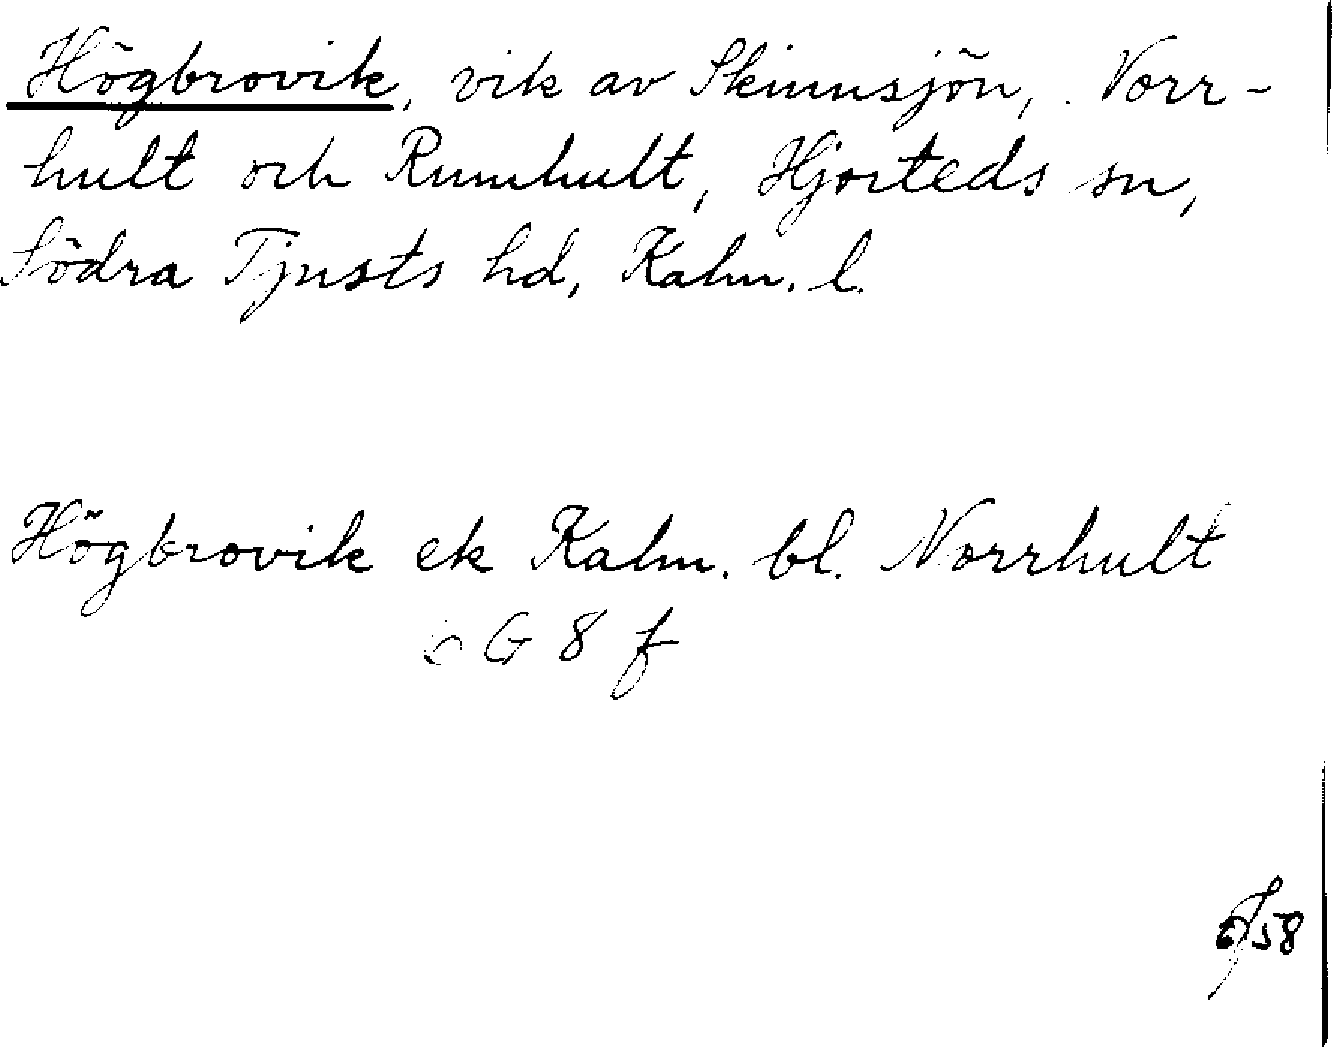 Högbrovik, vik av Skinnsjön, Norr-
hult och Rumhult, Hjorteds sn,
Södra Tjusts hd, Kalm. l.
Högbrovik ek Kalm. bl. Norrhult
G 8 f
58